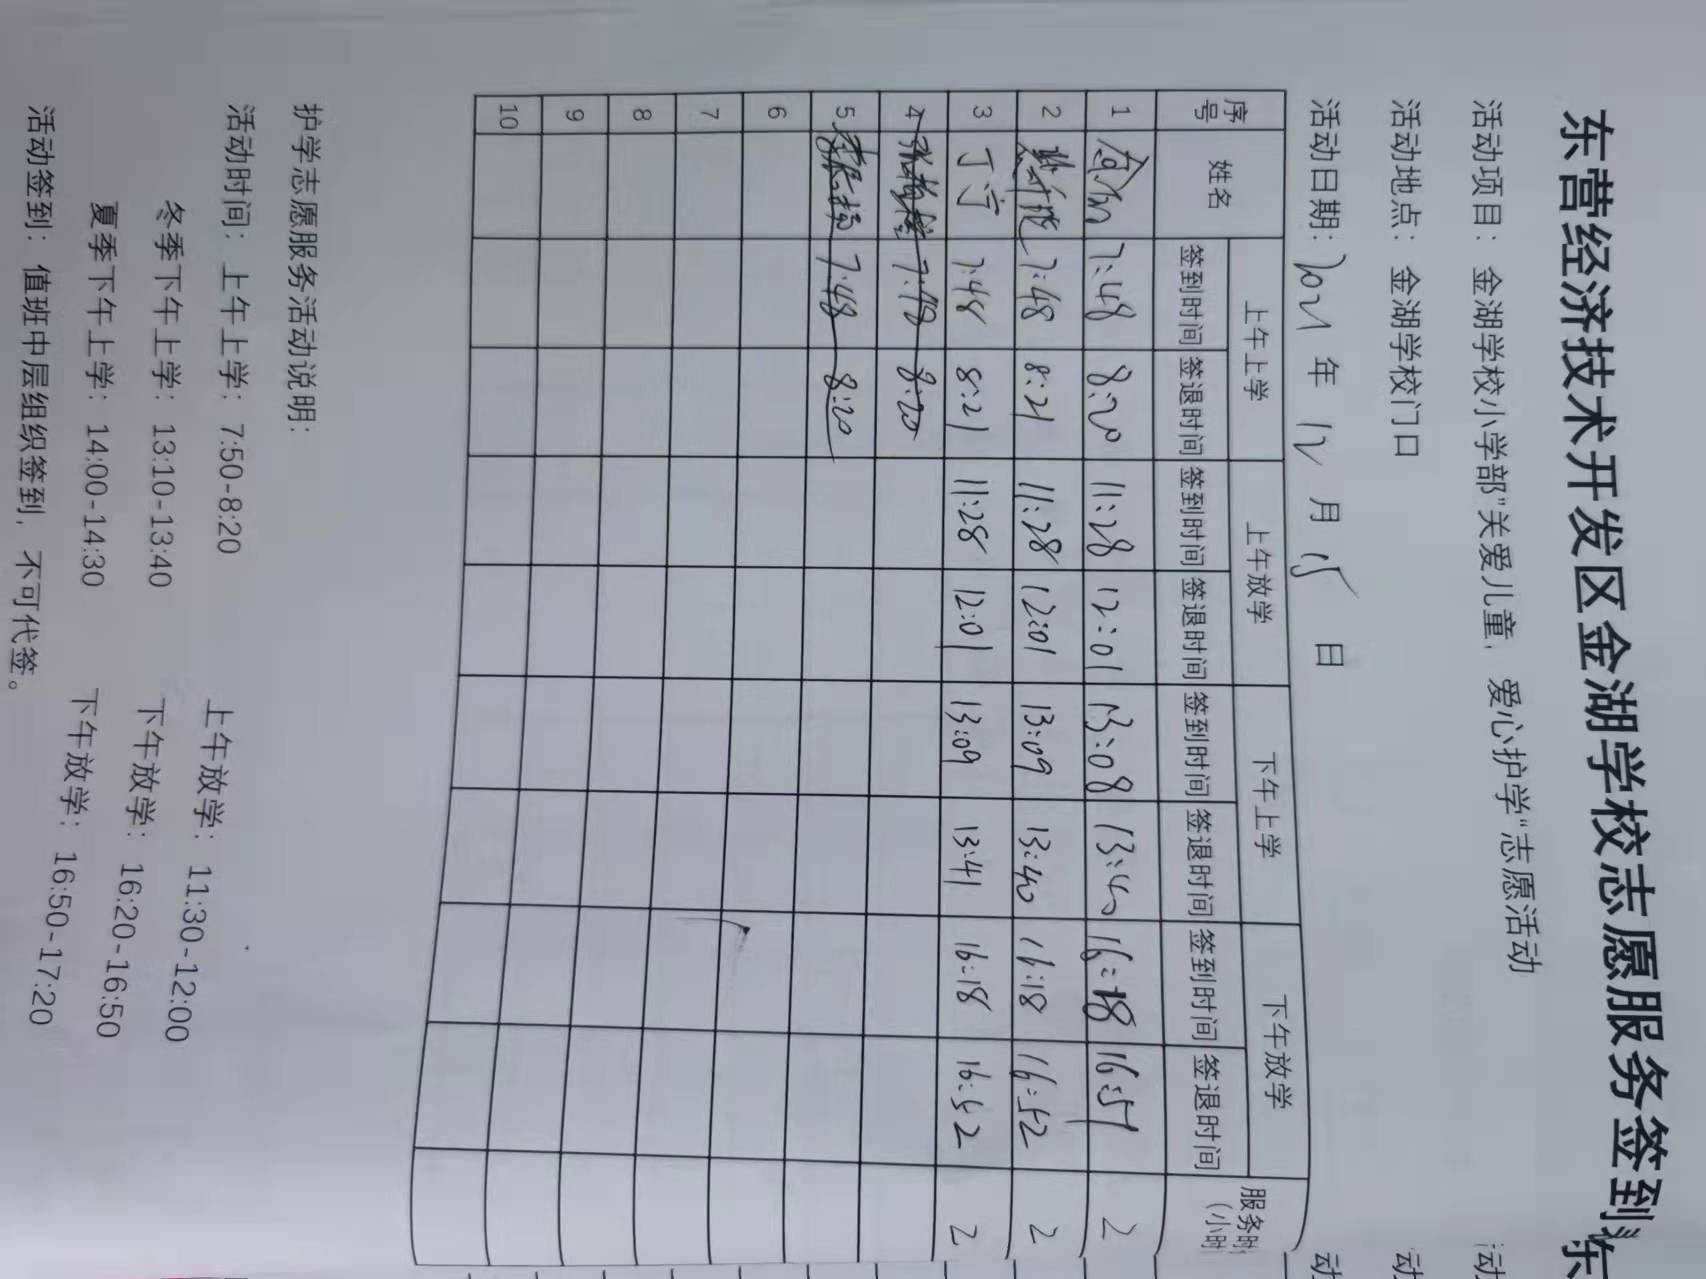 东营经济技术开发区金湖学校志愿服务签到
活动项目：金湖学校小学部“关爱儿童，爱心护学”志愿活动
活动地点：金湖学校门口
活动日期：2021年12月15日
序号 姓名 上午上学 上午放学 下午上学 下午放学 服务时（小时
签到时间 签退时间 签到时间 签退时间 签到时间 签退时间 签到时间 签退时间
1 7:48 8:20 11:28 12:01 13:08 13:40 16:18 16:51 2
2 7:48 8:21 11:28 12:01 13:09 13:40 16:18 16:52 2
3 丁宁 7:48 8:21 11:28 12:01 13:09 13:41 16:18 16:52 2
4 7:48 8:20
5 7:48 8:20
6
7
8
9
10
护学志愿服务活动说明：
活动时间：上午上学：7:50-8:20 上午放学：11:30-12:00
冬季下午上学：13:10-13:40 下午放学：16:20-16:50
夏季下午上学：14:00-14:30 下午放学：16:50-17:20
活动签到：值班中层组织签到，不可代签。
东
活
活
活